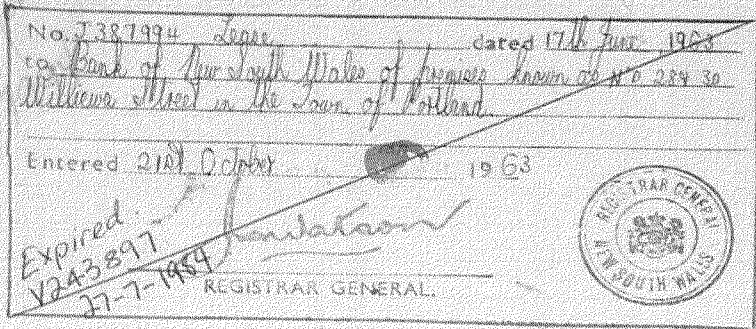 No. J387994 Lease dated 17th June, 1963
to Bank of New South Wales of premises known as No 28 & 30
Williwa Street in the Town of Portland.
Entered 21st October 1963
Expired
V243897
27-7-1984
REGISTRAR GENERAL.
REGISTRAR GENERAL
NEW SOUTH WALES